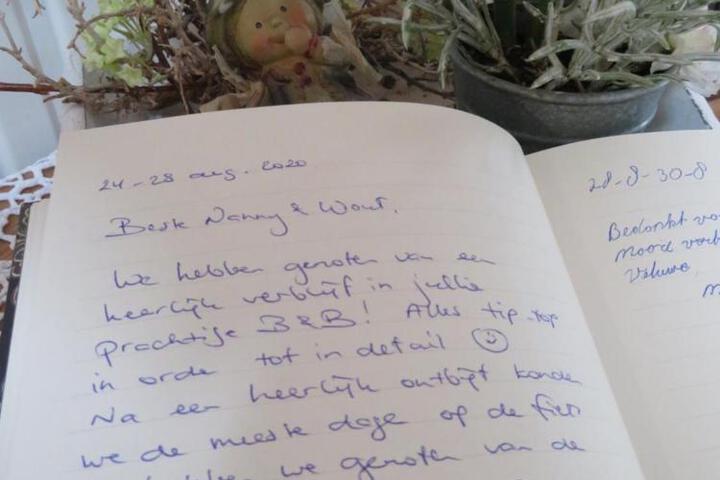 24-28 aug. 2020
Beste Nanny & Wout,
We hebben genoten van een
heerlijk verblijf in jullie
prachtige B&B! Alles tip-top
in orde tot in detail ☺
Na een heerlijk ontbijt konden
we de meeste dage op de fiets
we genoten van de
28-8-30-8
Bedankt vo
Mood
Veluwe